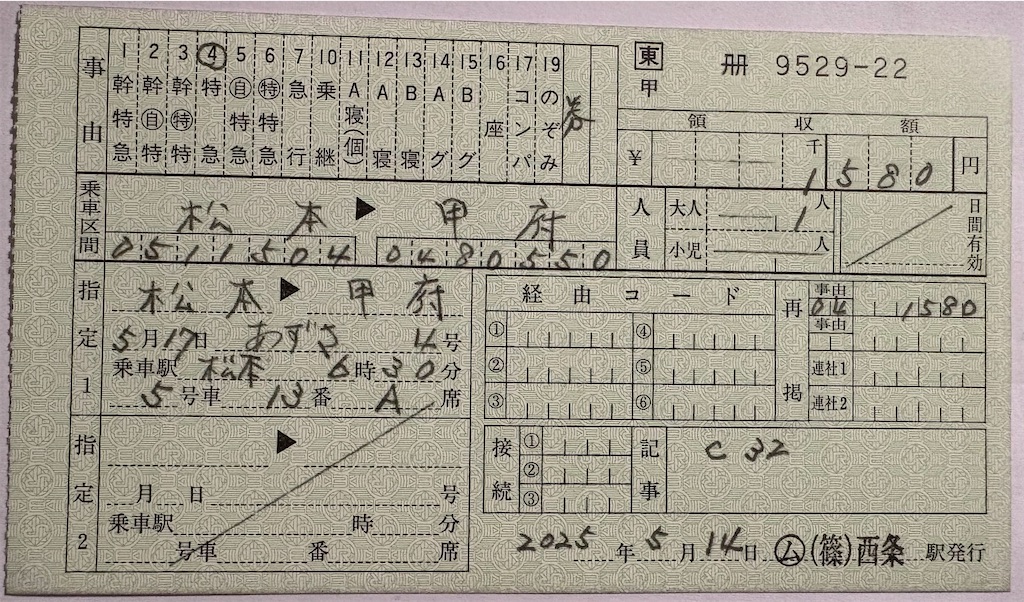 事由
1 幹特急
2 幹㊀特
3 幹㊕特
④ 特急
5 ㊀特急
6 ㊕特急
7 急行
10 乗継
11 A寝(個)
12 A寝
13 B寝
14 Aグ
15 Bグ
16 座
17 コンパ
19 のぞみ
券
東 冊 9529-22
甲
領収額
¥ 千 1580 円
乗車区間 松本 ▶ 甲府
0511504 0480550
人員 大人 1 人
小児 人
日間有効
指定1
松本 ▶ 甲府
5月17日 あずさ 4号
乗車駅 松本 6時30分
5号車 13番 A席
指定2
▶
月 日 号
乗車駅 時 分
号車 番 席
経由コード
① ④
② ⑤
③ ⑥
再掲
事由 04 1580
事由
連社1
連社2
接続 ① ② ③
記事 C32
2025年5月14日 ㋰(篠)西条 駅発行